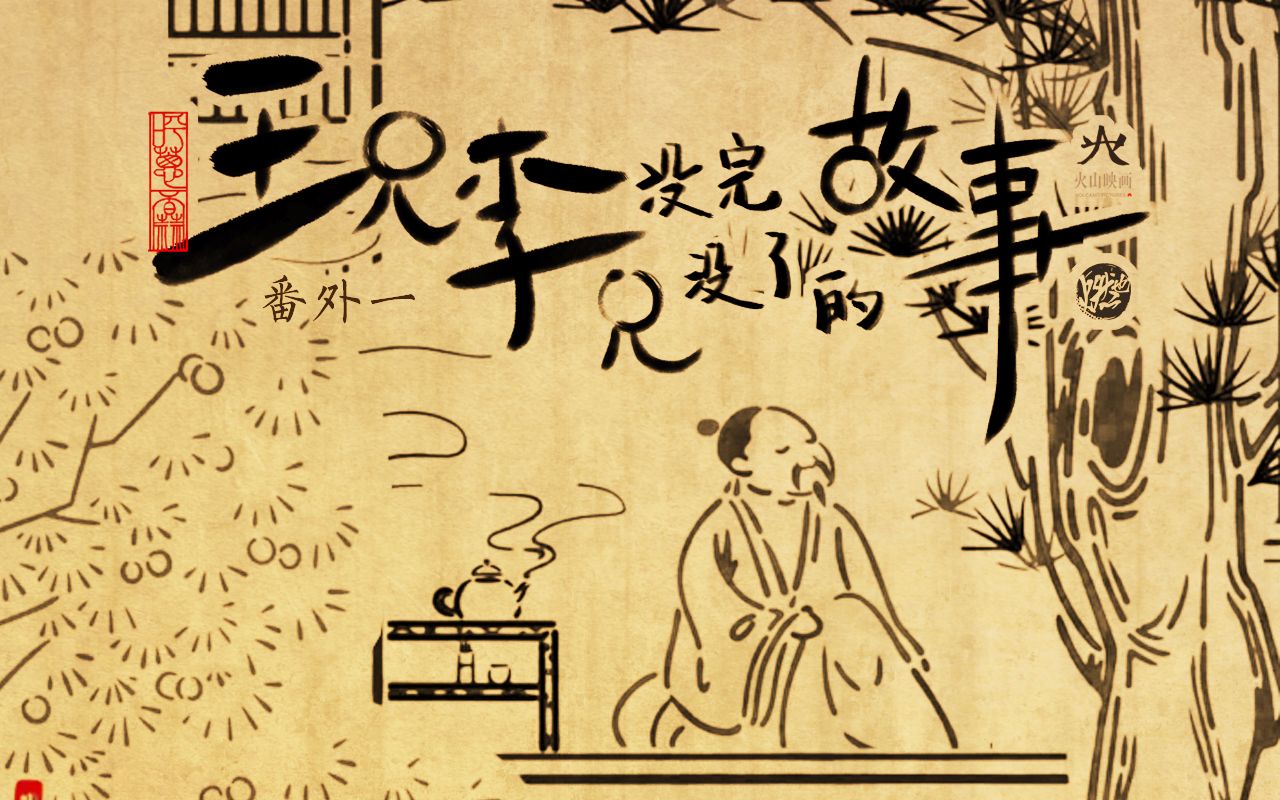 王兄李兄没完没了的故事
番外一
火山映画